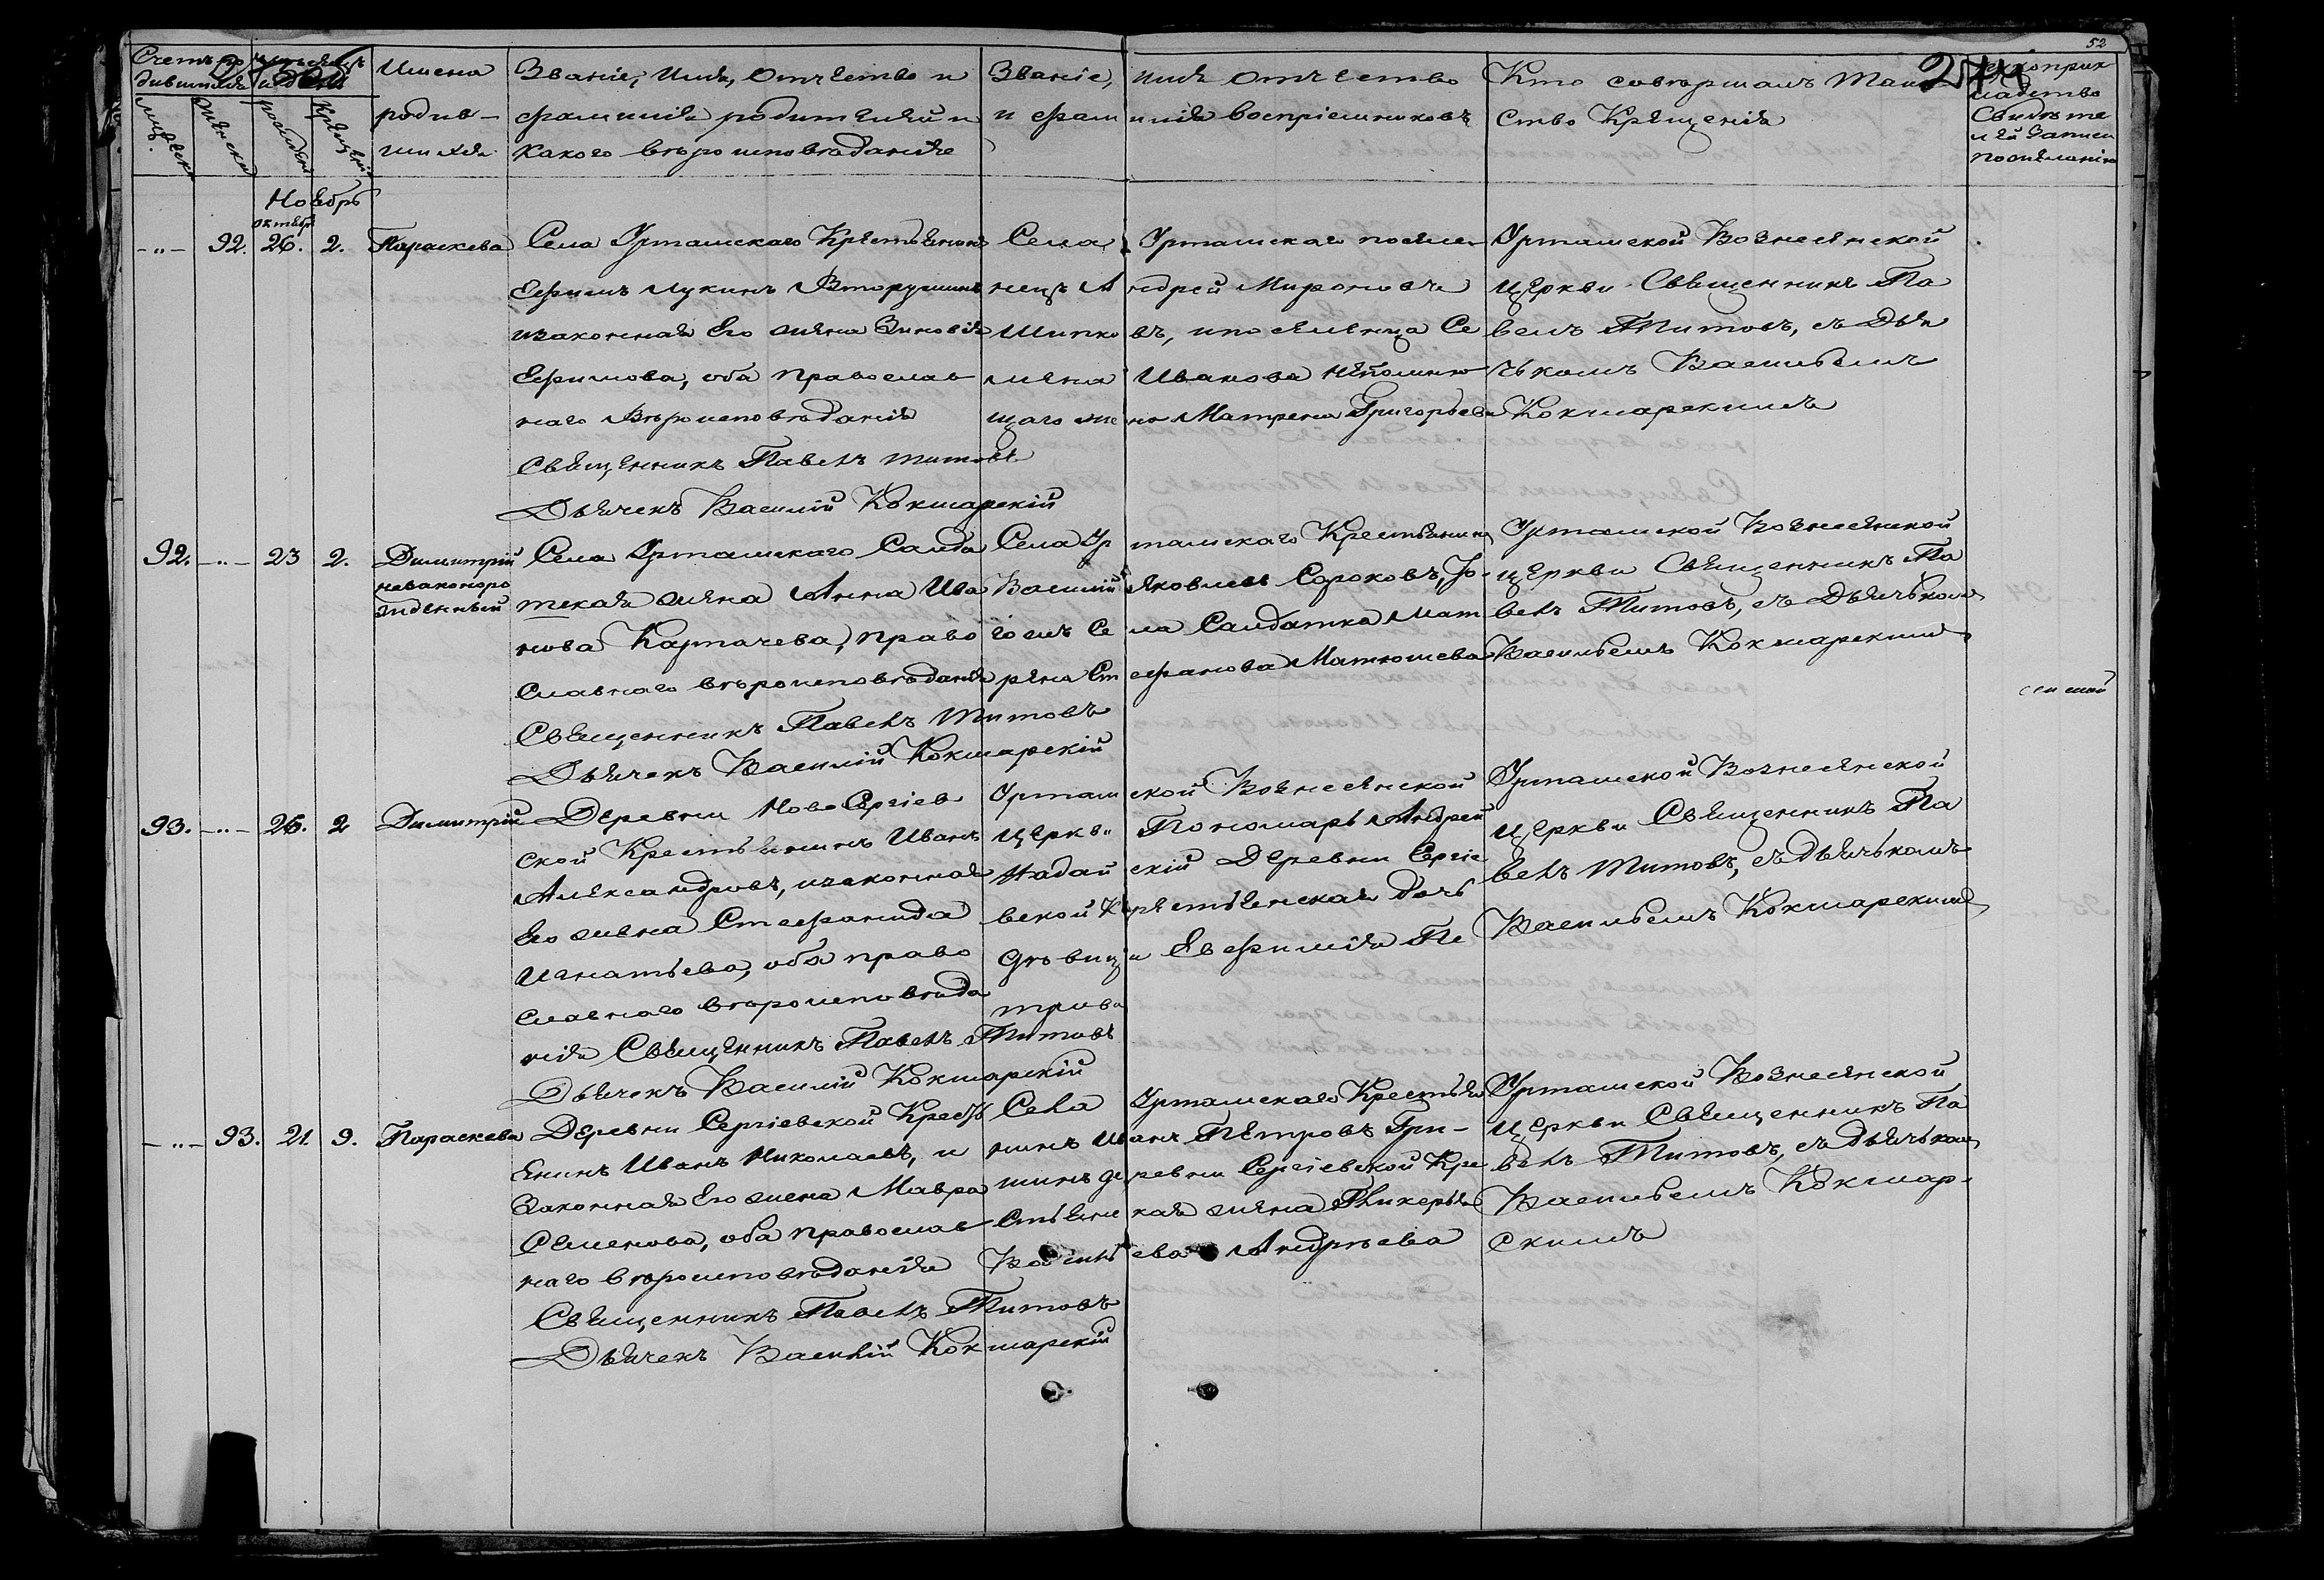 52
Счетъ родившихся
Мѣсяцъ и день
244
мужеска
женска
рожденія
крещенія
Имена
родив-
шихся
Званіе, Имя, Отчество и
фамилія родителей и
какого вѣроисповѣданія
Званіе, имя отчество
и фамилія воспріемниковъ
Кто совершалъ Таин
ство Крещенія
Рукоприк
ладство
Свидѣте
лей записи
по желанію
Ноябрь
октябр
-"- 92. 26. 2. Параскева
Села Урташскаго Крестьянинъ
Ефимъ Лукинъ Вторушинъ
изаконная Его жена Зиновія
Ефимова, оба православ
наго Вѣроисповѣданія
Священникъ Павелъ Титовъ
Дьячекъ Василій Кокшарскій
Села Урташскаго поселе
нецъ Андрей Мироновъ
Шипковъ, ипоселенца Се
мена Иванова Непомню
щаго жена Матрена Григорьева
Урташской Вознесенской
церкви Священникъ Па
велъ Титовъ, съ Дья
чькомъ Васильемъ
Кокшарскимъ
92. -"- 23 2. Димитрій
незаконоро
жденный
Села Урташскаго Салда
тская жена Анна Ива
нова Карпачева, право
славнаго вѣроисповѣданія
Священникъ Павелъ Титовъ
Дьячекъ Василій Кокшарскій
Села Урташскаго Крестьянинъ
Василій Яковлевъ Сороковъ, То-
гожъ Села Салдатка Мат
рена Стефанова Матюшева
Урташской Вознесенской
церкви Священникъ Па
велъ Титовъ, съ Дьячькомъ
Васильемъ Кокшарскимъ
93. -"- 26. 2 Димитрій
Деревни НовоСергіев
ской Крестьянинъ Иванъ
Александровъ, изаконная
Его жена Стефанида
Игнатьева, оба право
славнаго вѣроисповѣда
нія Священникъ Павелъ Титовъ
Дьячекъ Василій Кокшарскій
Урташской Вознесенской
церкви Пономарь Андрей
Надайскій Деревни Сергіе
вской Крестьянская дочь
дѣвица Евфимія Пе
трова
Урташской Вознесенской
церкви Священникъ Па
велъ Титовъ, съ дьячькомъ
Васильемъ Кокшарскимъ
-"- 93. 21. 9. Параскева
Деревни Сергіевской Кресть
янинъ Иванъ Николаевъ, и
Законная Его жена Мавра
Семенова, оба православ
наго вѣроисповѣданія
Священникъ Павелъ Титовъ
Дьячекъ Василій Кокшарскій
Села Урташскаго Крестья
нинъ Иванъ Петровъ Гри-
шинъ деревни Сергіевской Кре
стьянская жена Гликерья
Васильева Андрѣева
Урташской Вознесенской
церкви Священникъ Па
велъ Титовъ, съ дьячькомъ
Васильемъ Кокшар-
скимъ